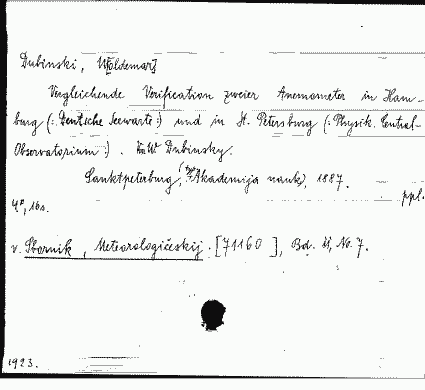 Dubinski, W[oldemar]
Vergleichende Verification zweier Anemometer in Ham-
burg (: Deutsche Seewarte :) und in St. Petersburg (: Physik. Central-
Observatorium :). W Dubinsky.
Sanktpeterburg, Akademija nauk), 1887.
ppl.
4°, 16 s.
v. Sbornik, Meteorologičeskij. [71160], Bd. 11, No. 7.
1923.